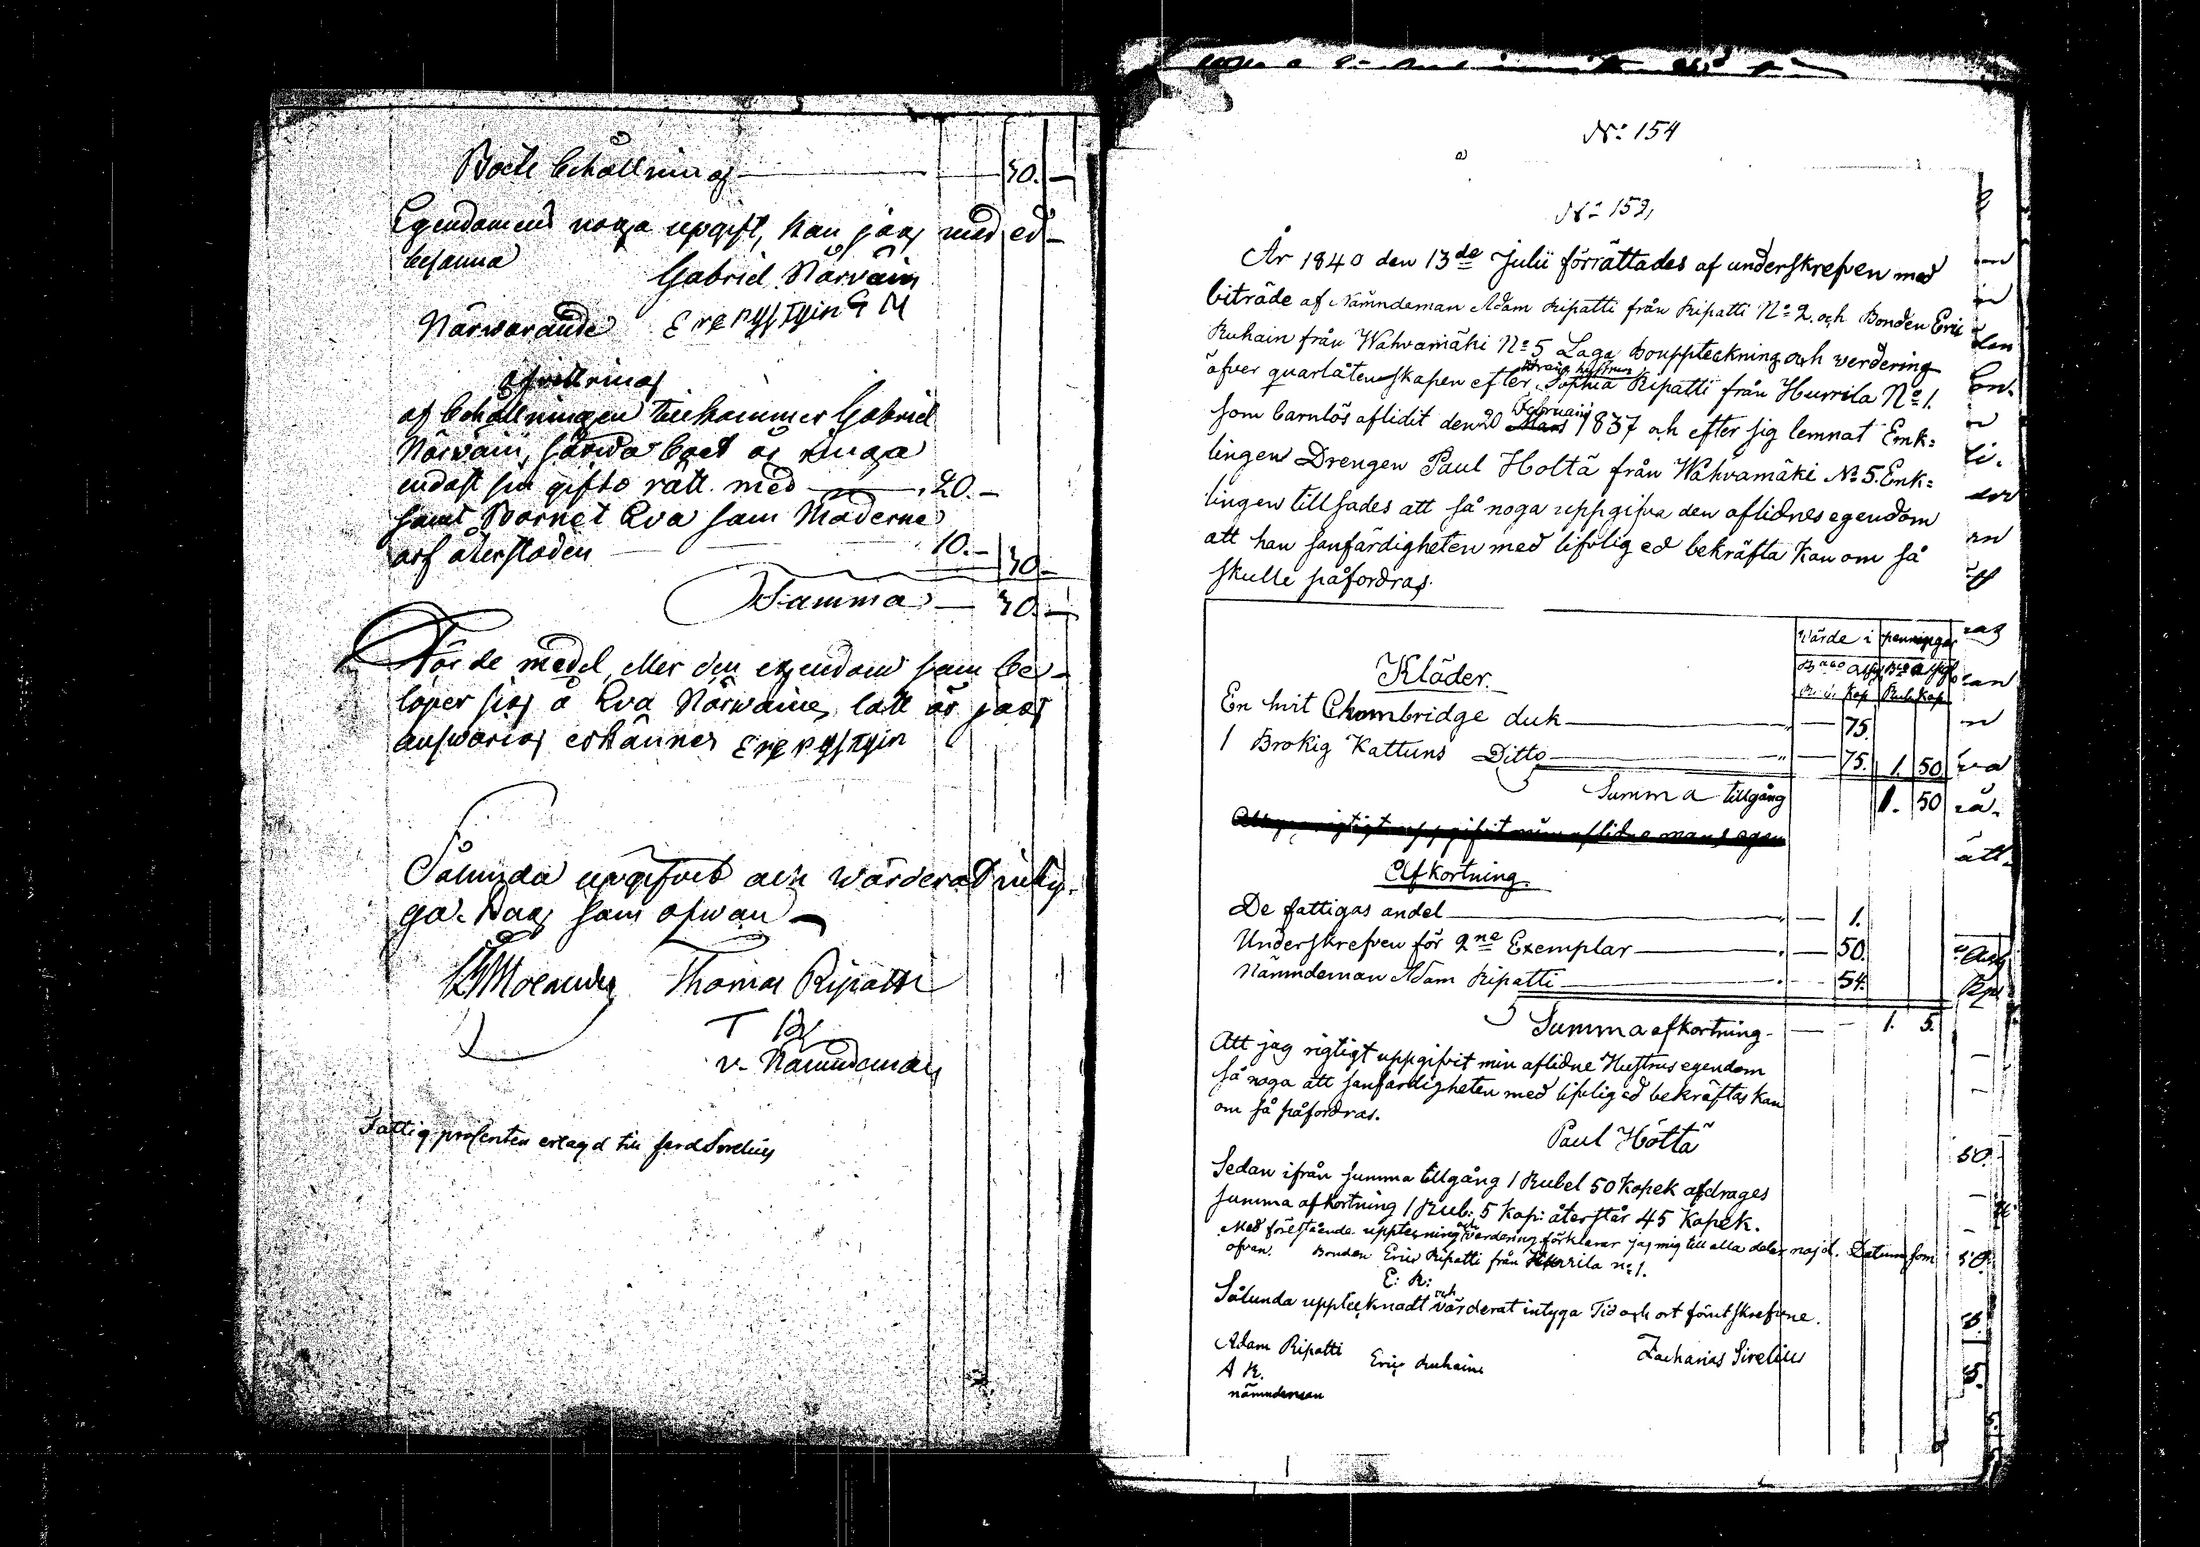 Boets behållning 30. —
Egendomens noga upgift, kan jag med ed
besanna
Gabriel Närväin
Närwarande
Afvittring
af behållningen tillkommer Gabriel
Närväin, boet är ringa
endast sin gifto rätt med 20. —
samt Barnet Eva sam Moderne
arf återstoden 10. — 30 —
Summa — 30. —
För de medel eller den egendom sam be-
löper sig å Eva Närwäine lått är jag
answarig erkännes
Sålunda upgifvet och wärderad inty-
ga. Dag sam ofwan —
Thomas Ripatti
T R
v. Nämndeman
Fattig prosenten erlagd till ferd Sirelius
No: 154
No: 153,
År 1840 den 13de Julii förrättades af underskrefven med
biträde af Nämndeman Adam Ripatti från Ripatti No 2. och Bonden Eric
Ruhain från Wahvamäki No 5 Laga Bouppteckning och verdering
öfver quarlåtenskapen efter Sophia Ripatti från Hurrila No 1.
som barnlös aflidit den 20 Februarii Mars 1837 och efter sig lemnat Enk=
lingen Drengen Paul Holtä från Wahvamäki No 5. Enk=
lingen tillsades att så noga uppgifva den aflidnes egendom
att han sanfärdigheten med lifvlig ed bekräfta Kan om så
skulle påfordras.
Wärde i penningar
Kläder.
En hvit Chambridge duk — 75.
1 Brokig Kattuns Ditto — 75. 1. 50
Summa tillgång 1. 50
Afkortning.
De fattigas andel — 1.
Underskrefven för 2ne Exemplar — 50.
Nämndeman Adam Ripatti — 54.
Summa afkortning — 1. 5.
Att jag rigtigt uppgifvit min aflidne Hustrus egendom
så noga att sanfärdigheten med lifvlig ed bekräftas kan
om så påfordras.
Paul Höttä
Sedan ifrån summa tillgång 1 Rubel 50 Kopek afdrages
summa afkortning 1 Rub: 5 Kop: återstår 45 Kopek.
Med förestående uppteckning och värdering förklarar jag mig till alla delar nöjd. Datum som
ofvan. Bonden Eric Ripatti från Hurrila no: 1.
E: R:
Sålunda upptecknadt och värderat intyga Tid och ort förutskrefvne.
Adam Ripatti Eric Ruhain Zacharias Sirelius
A R.
nämndeman